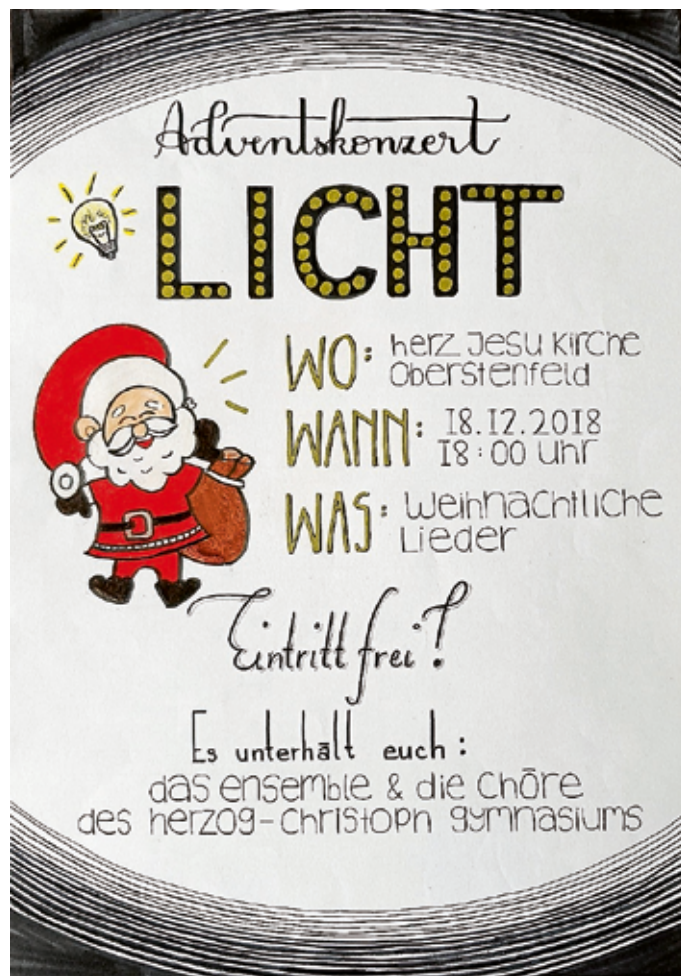 Adventskonzert
LICHT
WO: herz Jesu Kirche
Oberstenfeld
WANN: 18.12.2018
18:00 uhr
WAS: Weihnachtliche
Lieder
Eintritt frei!
Es unterhält euch:
das ensemble & die Chöre
des herzog-Christoph gymnasiums